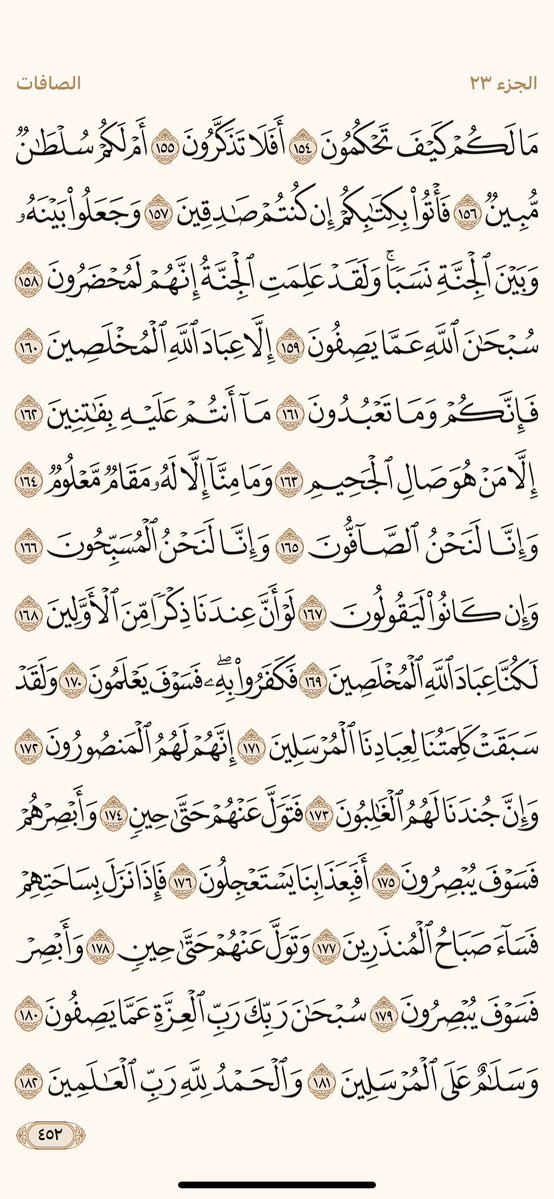 الجزء ٢٣
الصافات
مَا لَكُمْ كَيْفَ تَحْكُمُونَ ١٥٤ أَفَلَا تَذَكَّرُونَ ١٥٥ أَمْ لَكُمْ سُلْطَٰنٌ
مُّبِينٌ ١٥٦ فَأْتُوا۟ بِكِتَٰبِكُمْ إِن كُنتُمْ صَٰدِقِينَ ١٥٧ وَجَعَلُوا۟ بَيْنَهُۥ
وَبَيْنَ ٱلْجِنَّةِ نَسَبًا ۚ وَلَقَدْ عَلِمَتِ ٱلْجِنَّةُ إِنَّهُمْ لَمُحْضَرُونَ ١٥٨
سُبْحَٰنَ ٱللَّهِ عَمَّا يَصِفُونَ ١٥٩ إِلَّا عِبَادَ ٱللَّهِ ٱلْمُخْلَصِينَ ١٦٠
فَإِنَّكُمْ وَمَا تَعْبُدُونَ ١٦١ مَآ أَنتُمْ عَلَيْهِ بِفَٰتِنِينَ ١٦٢
إِلَّا مَنْ هُوَ صَالِ ٱلْجَحِيمِ ١٦٣ وَمَا مِنَّآ إِلَّا لَهُۥ مَقَامٌ مَّعْلُومٌ ١٦٤
وَإِنَّا لَنَحْنُ ٱلصَّآفُّونَ ١٦٥ وَإِنَّا لَنَحْنُ ٱلْمُسَبِّحُونَ ١٦٦
وَإِن كَانُوا۟ لَيَقُولُونَ ١٦٧ لَوْ أَنَّ عِندَنَا ذِكْرًا مِّنَ ٱلْأَوَّلِينَ ١٦٨
لَكُنَّا عِبَادَ ٱللَّهِ ٱلْمُخْلَصِينَ ١٦٩ فَكَفَرُوا۟ بِهِۦ ۖ فَسَوْفَ يَعْلَمُونَ ١٧٠ وَلَقَدْ
سَبَقَتْ كَلِمَتُنَا لِعِبَادِنَا ٱلْمُرْسَلِينَ ١٧١ إِنَّهُمْ لَهُمُ ٱلْمَنصُورُونَ ١٧٢
وَإِنَّ جُندَنَا لَهُمُ ٱلْغَٰلِبُونَ ١٧٣ فَتَوَلَّ عَنْهُمْ حَتَّىٰ حِينٍ ١٧٤ وَأَبْصِرْهُمْ
فَسَوْفَ يُبْصِرُونَ ١٧٥ أَفَبِعَذَابِنَا يَسْتَعْجِلُونَ ١٧٦ فَإِذَا نَزَلَ بِسَاحَتِهِمْ
فَسَآءَ صَبَاحُ ٱلْمُنذَرِينَ ١٧٧ وَتَوَلَّ عَنْهُمْ حَتَّىٰ حِينٍ ١٧٨ وَأَبْصِرْ
فَسَوْفَ يُبْصِرُونَ ١٧٩ سُبْحَٰنَ رَبِّكَ رَبِّ ٱلْعِزَّةِ عَمَّا يَصِفُونَ ١٨٠
وَسَلَٰمٌ عَلَى ٱلْمُرْسَلِينَ ١٨١ وَٱلْحَمْدُ لِلَّهِ رَبِّ ٱلْعَٰلَمِينَ ١٨٢
٤٥٢